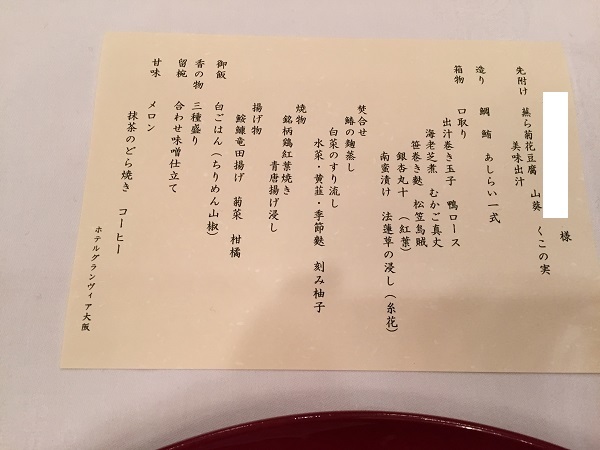 様
先附け 蒸ら菊花豆腐 山葵 くこの実
美味出汁
造り 鯛 鮪 あしらい一式
箱物 口取り
出汁巻き玉子 鴨ロース
海老芝煮 むかご真丈
笹巻き麩 松笠烏賊
銀杏丸十 (紅葉)
南蛮漬け 法蓮草の浸し(糸花)
焚合せ
鰆の麹蒸し
白菜のすり流し
水菜・黄韮・季節麩 刻み柚子
焼物
銘柄鶏紅葉焼き
青唐揚げ浸し
揚げ物
鮟鱇竜田揚げ 菊菜 柑橘
御飯 白ごはん(ちりめん山椒)
香の物 三種盛り
留椀 合わせ味噌仕立て
甘味 メロン
抹茶のどら焼き コーヒー
ホテルグランヴィア大阪